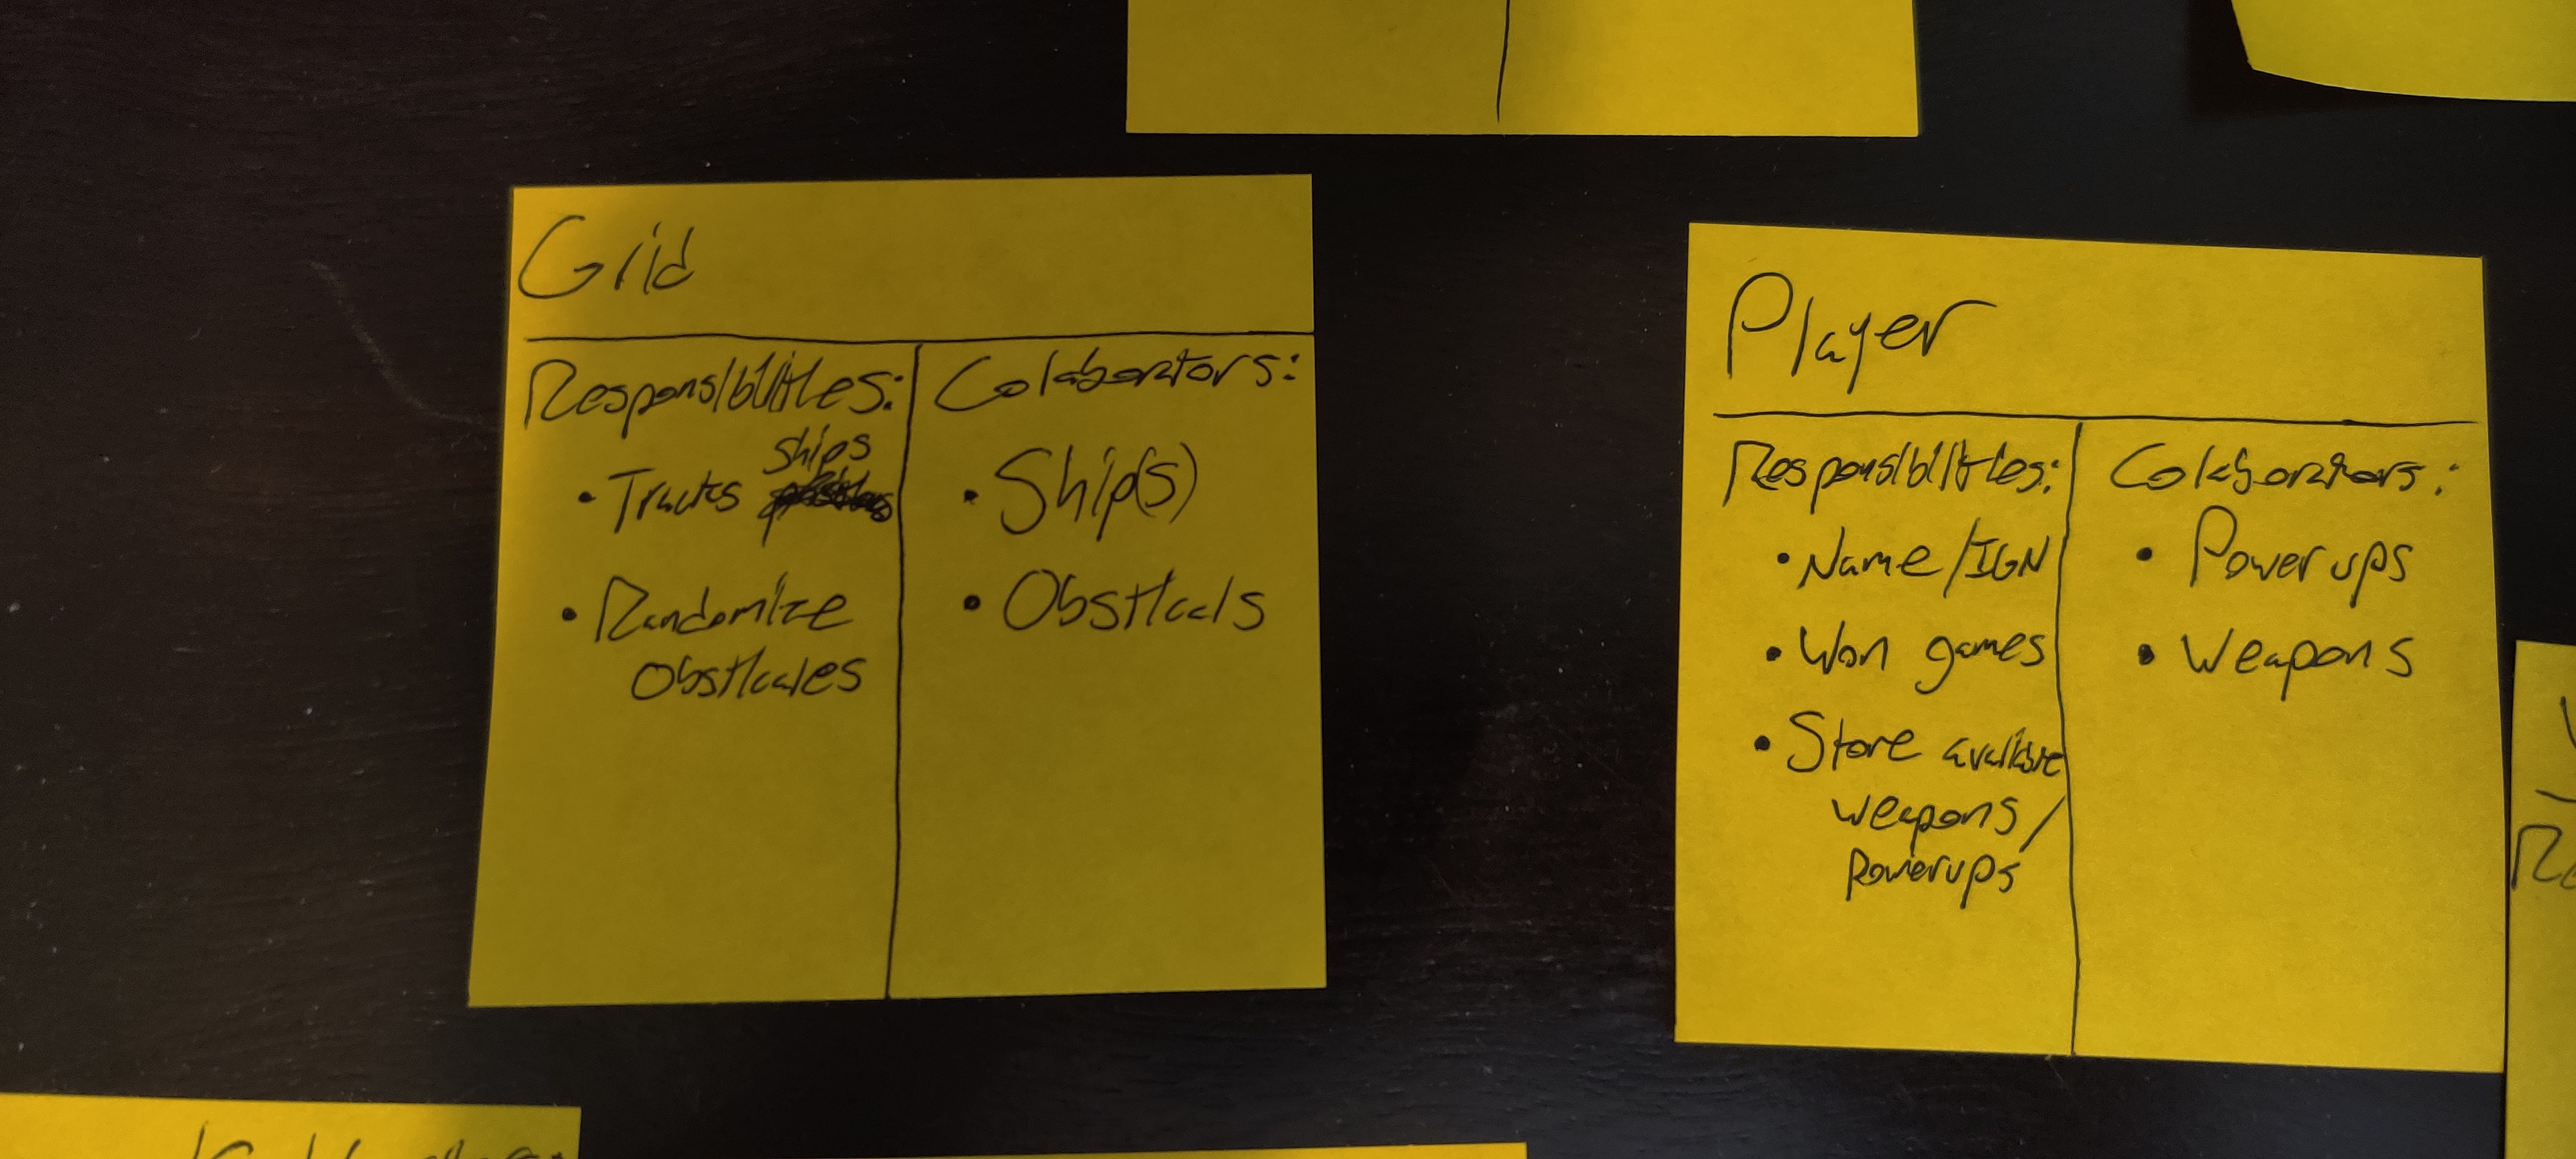 Grid
Responsibilities:
• Tracks ships
• Randomize
Obsticales
Colaborators:
• Ship(s)
• Obsticals
Player
Responsibilities:
• Name/IGN
• Won games
• Store available
weapons/
Powerups
Colaborators:
• Power ups
• Weapons